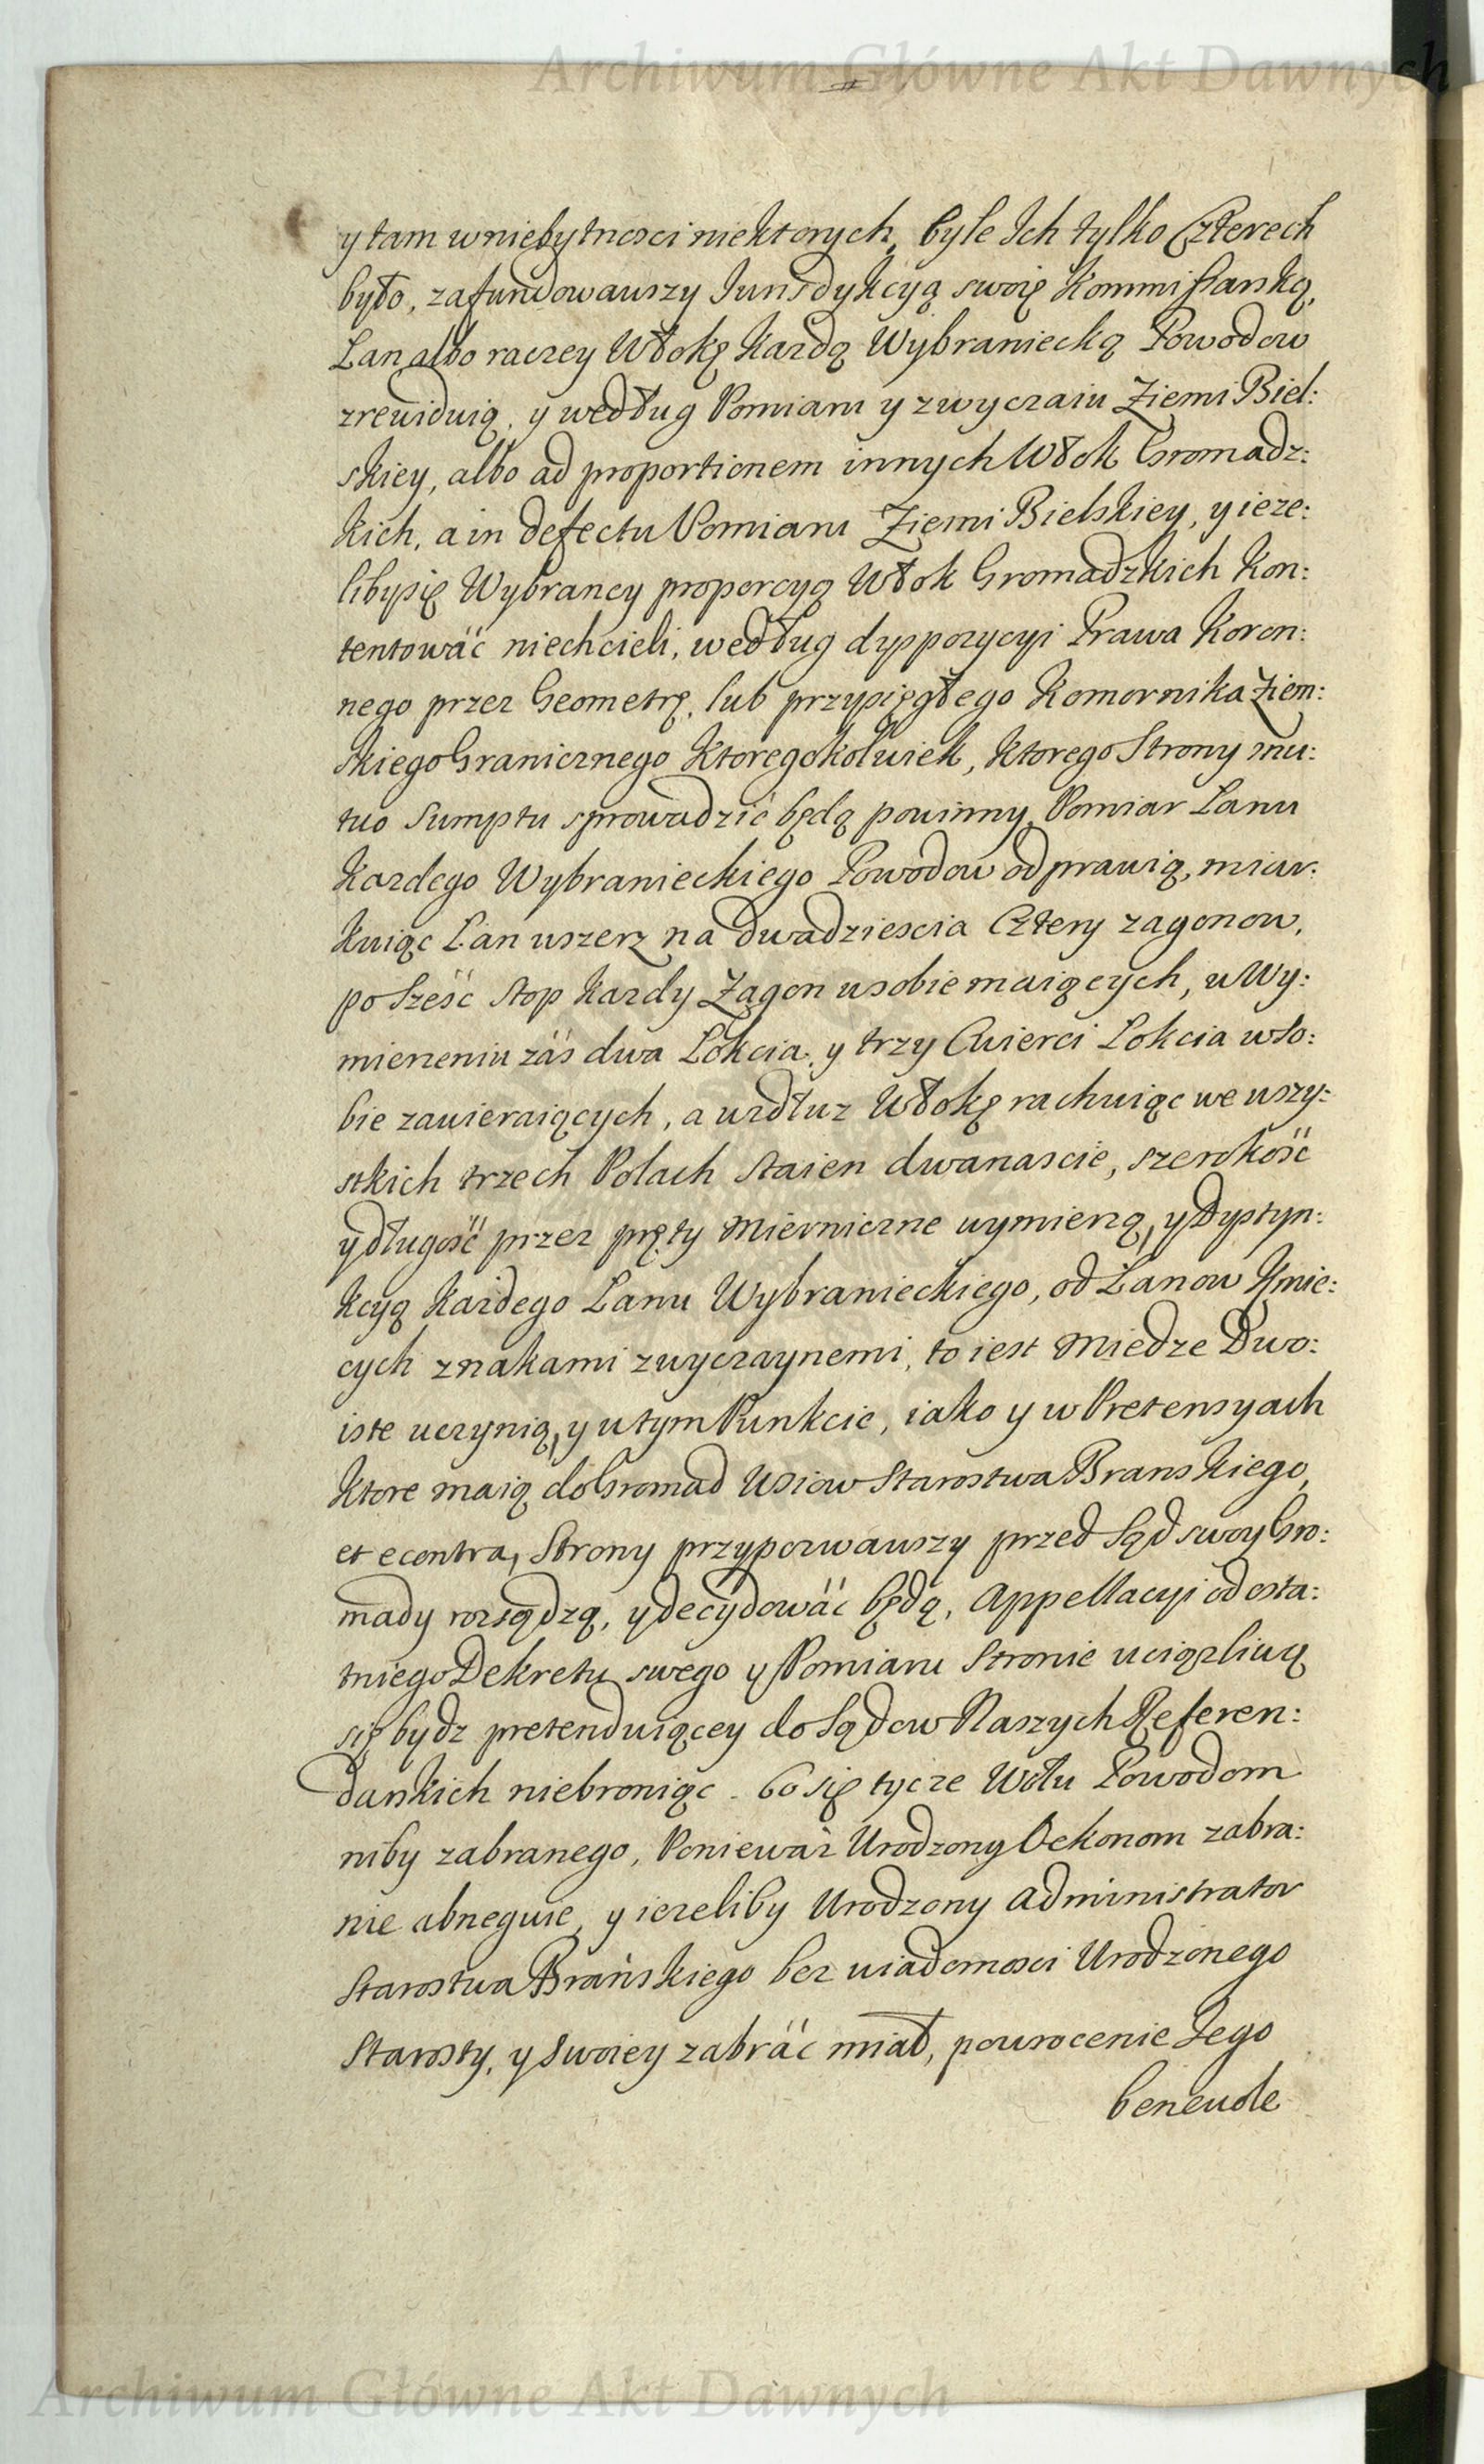 Archiwum Główne Akt Dawnych
y tam w niebytnosci niektorych, byle Ich tylko Czterech
było, zafundowawszy Iurisdykcyą swoię Kommissarską,
Lan albo raczey Włokę Kazdą Wybraniecką Powodow
zrewiduią, y według Pomiaru y zwyczaiu Ziemi Biel:
skiey, albo ad proportionem innych Włok Gromadz:
kich, a in defectu Pomiaru Ziemi Bielskiey, y ieże:
liby się Wybrancy proporcyą Włok Gromadzkich Kon:
tentowäć niechcieli, według dyspozycyi Prawa Koron:
nego przez Geometrę, lub przysięgłego Komornika Ziem:
skiego Granicznego Ktoregokolwiek, Ktorego Strony mu:
tuo Sumptu sprowadzić będą powinny, Pomiar Lanu
Kazdego Wybranieckiego Powodow odprawią, miar:
kuiąc Lan wszerz na dwadziescia Cztery zagonow,
po Sześć Stop Kazdy Zagon w sobie maiących, w Wy:
mierzeniu záś dwa Lokcia y trzy Cwierci Lokcia w so:
bie zawieraiących, a wzdłuz Włokę rachuiąc we wszy:
stkich trzech Polach Staien dwanascie, szerokość
y długość przez pręty Miernicze wymierzą, y Dystyn:
kcyą Każdego Lanu Wybranieckiego, od Lanow Kmie:
cych znakami zwyczaynemi, to iest Miedze Dwo:
iste uczynią, y w tym Punkcie, iako y w Pretensyach
Ktore maią do Gromad Wsiow Starostwa Branskiego,
et econtra, Strony przypozwawszy przed Sąd swoy Gro:
mady rozsądzą, y decydowäć będą, Appellacyi od osta:
tniego Dekretu swego y Pomiaru Stronie uciązliwą
się bydz pretenduiącey do Sądow Naszych Referen:
darskich niebroniąc. Co się tycze Wołu Powodom
niby zabranego, Ponieważ Urodzony Oekonom zabra:
nie abneguie, y iezeliby Urodzony Administrator
Starostwa Brańskiego bez wiadomosci Urodzonego
Starosty, y Swoiey zabräć miał, powrocenie Jego
benevole
Archiwum Główne Akt Dawnych